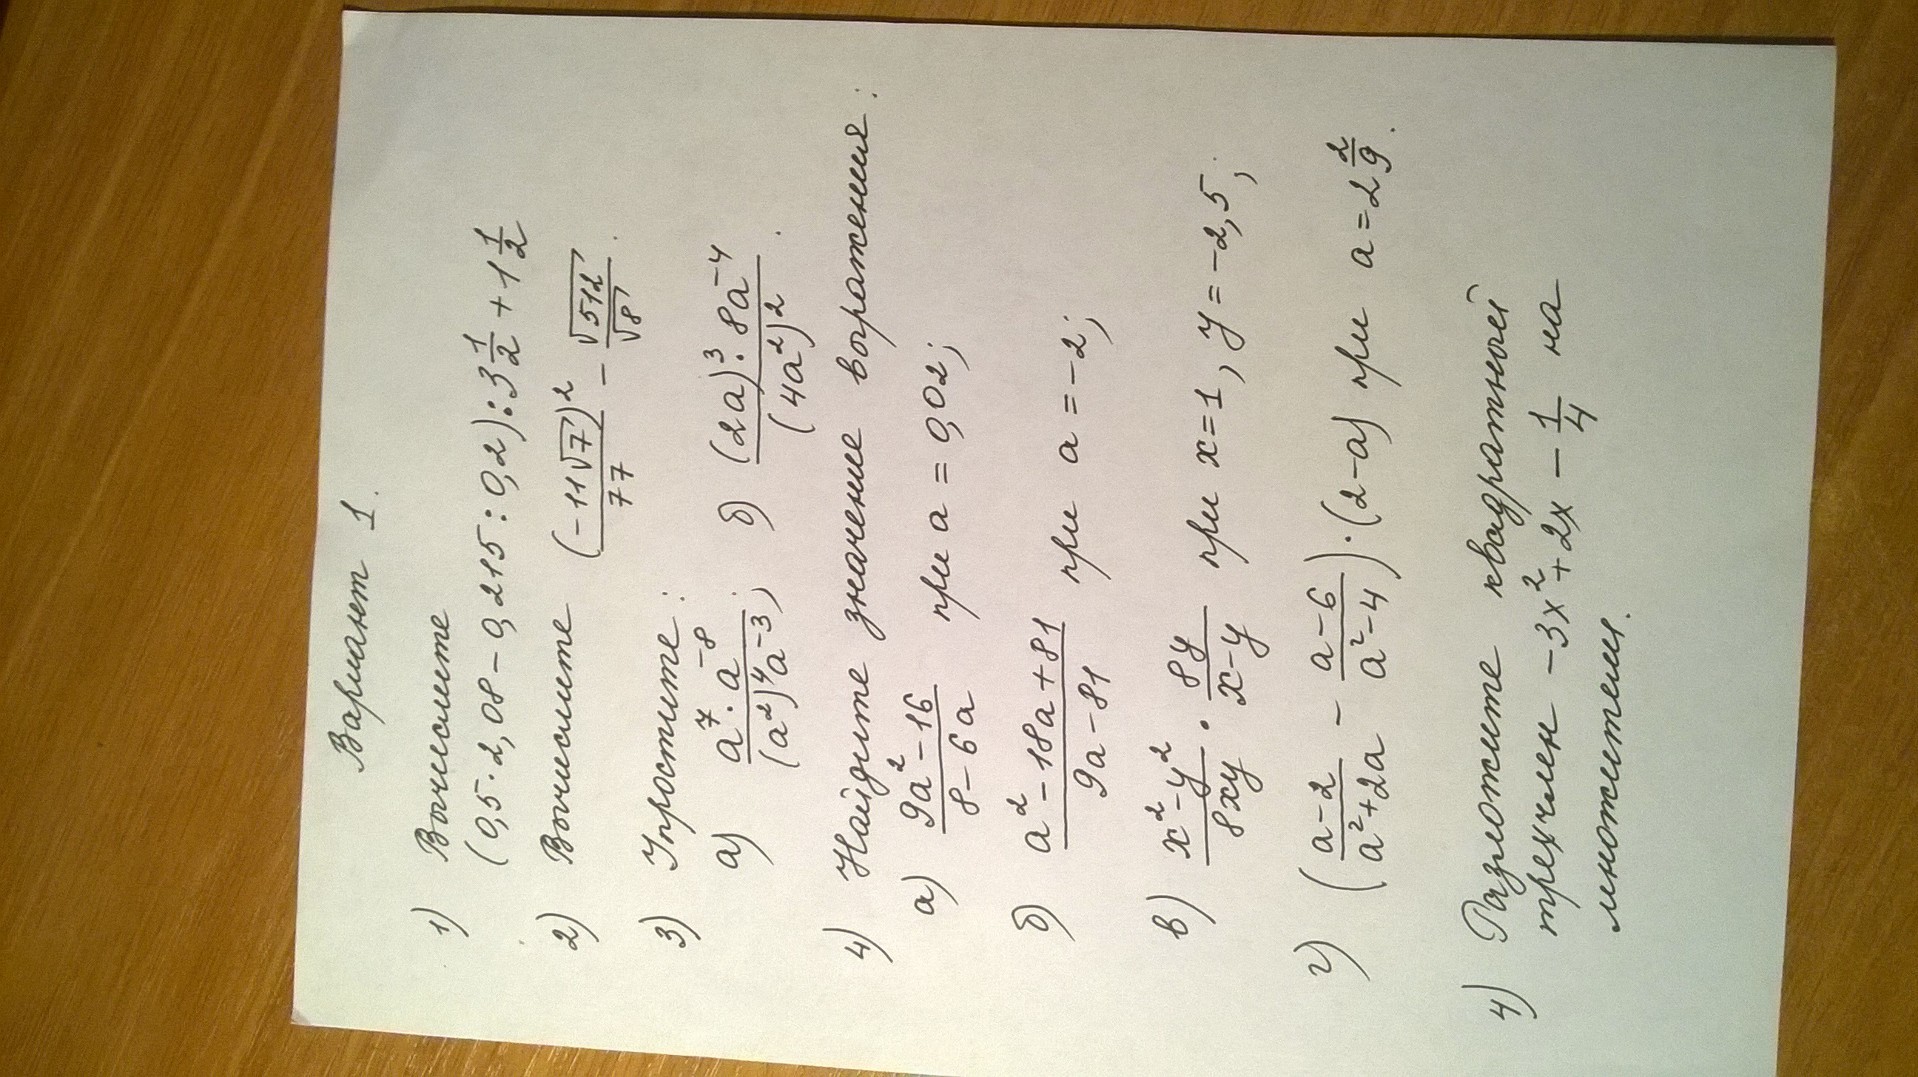 Вариант 1.
1) Вычислите
(0,5·2,08 − 0,215:0,2):3 1/2 + 1 1/2
2) Вычислите (−11√7)²/77 − √512/√8.
3) Упростите:
а) a⁷·a⁻⁸/(a²)⁴a⁻³; б) (2a)³·8a⁻⁴/(4a²)².
4) Найдите значение выражения:
а) 9a²−16/8−6a при a = 0,02;
б) a²−18a+81/9a−81 при a = −2;
в) x²−y²/8xy · 8y/x−y при x=1, y = −2,5;
г) (a−2/a²+2a − a−6/a²−4)·(2−a) при a = 2 2/9.
4) Разложите квадратный
трехчлен −3x²+2x − 1/4 на
множители.